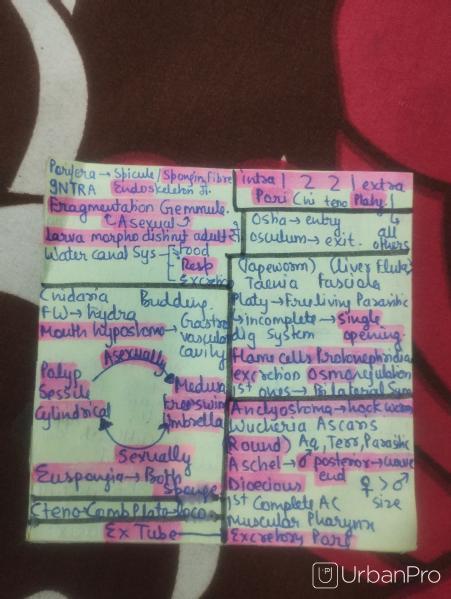 Porifera → Spicule/Spongin fibre
INTRA Endoskeleton
Fragmentation Gemmule
Asexual
Larva morpho distinct adult से
Water canal Sys → Food
Resp
Excretio
Cnidaria Budding
FW → hydra
Mouth hypostome → Gastro
vascular
cavity
Asexually
Polyp
Sessile
Cylindrical
Medusa
Free swim
Umbrella
Sexually
Euspongia → Bath
Sponge
Cteno → Comb Plate → loco
Ex Tube
intra 1 2 2 1 extra
Pori Cni teno Platy
Ostia → entry
osculum → exit.
all
others
(Tapeworm) (Liver Fluke)
Taenia Fasciola
Platy → Free living Parasitic
→ incomplete → single
dig system opening
Flame cells Protonephridia
excretion Osmoregulation
1st ones → Bilateral Sym
Anclyostoma → hook worm
Wucheria Ascaris
Round) Aq, Terr, Parasitic
Aschel → ♂ posterior → curve
end
Dioecious ♀ > ♂
size
1st Complete AC
Muscular Pharynx
Excretory Pore
UrbanPro